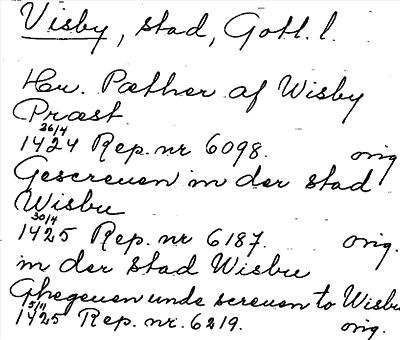 Visby, stad, Gotl. l.
Hr. Pæther af Wisby
Præst
26/4
1424 Rep. nr 6098. orig
Gescreuen in der stad
Wisbu
30/4
1425 Rep. nr 6187. orig.
in der stad Wisbu
Ghegeuen unde screuen to Wisbu
15/11
1425 Rep. nr. 6219. orig.